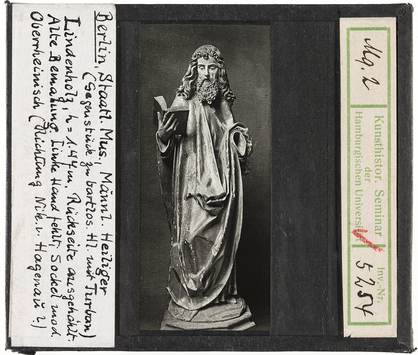 Berlin, Staatl. Mus. Männl. Heiliger
(Gegenstück zu bartlos. Hl. mit Turban)
Lindenholz, h = 1.47 m. Rückseite ausgehöhlt.
Alte Bemalung. Linke Hand fehlt. Sockel mod.
Oberrheinisch (Richtung Nik. v. Hagenau?)
Mq. 2
Kunsthistor. Seminar
der
Hamburgischen Universität
Inv.-Nr.
5254